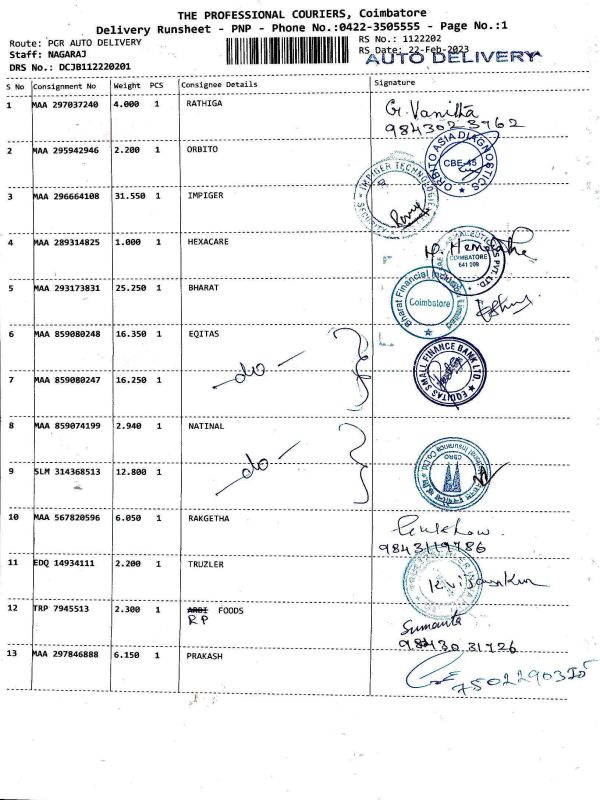 THE PROFESSIONAL COURIERS, Coimbatore
Delivery Runsheet - PNP - Phone No.:0422-3505555 - Page No.:1
Route: PCR AUTO DELIVERY
RS No.: 1122202
Staff: NAGARAJ
RS Date: 22-Feb-2023
AUTO DELIVERY
DRS No.: DCJB112220201
S No Consignment No Weight PCS Consignee Details Signature
1 MAA 297037240 4.000 1 RATHIGA
G. Vanitha
9843023962
2 MAA 295942946 2.200 1 ORBITO
ORBITO ASIA DIAGNOSTICS
CBE-45
3 MAA 296664108 31.550 1 IMPIGER
IMPIGER TECHNOLOGIES
4 MAA 289314825 1.000 1 HEXACARE
COIMBATORE
641 009
PVT. LTD.
5 MAA 293173831 25.250 1 BHARAT
Bharat Financial Limited
Coimbatore
6 MAA 859080248 16.350 1 EQITAS
-do-
EQUITAS SMALL FINANCE BANK LTD.
7 MAA 859080247 16.250 1
8 MAA 859074199 2.940 1 NATINAL
-do-
Insurance Co. Ltd.
CBRO
9 SLM 314368513 12.800 1
10 MAA 567820596 6.050 1 RAKGETHA
9843119786
11 EDQ 14934111 2.200 1 TRUZLER
12 TRP 7945513 2.300 1 FOODS
RP
Sumanta
9843031726
13 MAA 297846888 6.150 1 PRAKASH